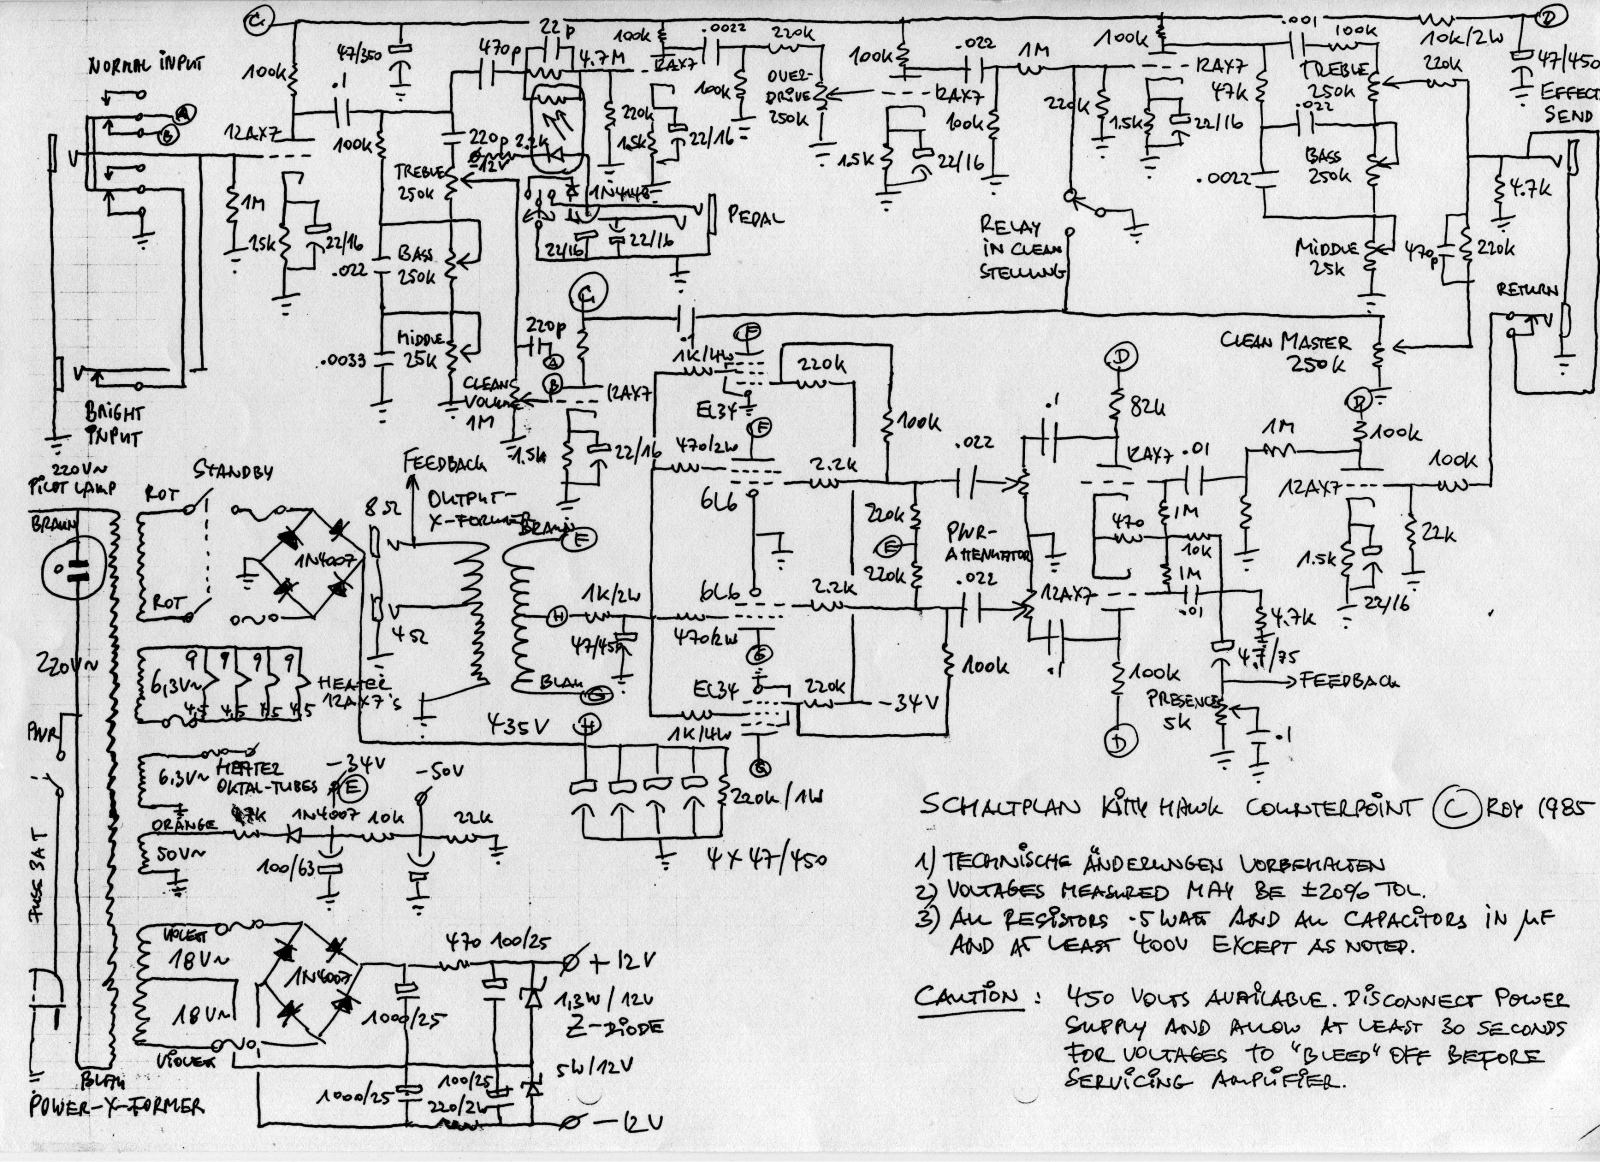 C
D
NORMAL INPUT
A
B
47/350
100k
.1
12AX7
470p
22p
4.7M
100k
12AX7
.0022
220k
100k
OVER-
DRIVE
250k
100k
.022
1M
12AX7
100k
220k
100k
12AX7
.001
100k
TREBLE
250k
47k
.022
10k/2W
220k
47/450
EFFECT
SEND
1M
1.5k
22/16
100k
220p
2.2k
-12V
TREBLE
250k
220k
1.5k
22/16
1N4448
22/16
22/16
PEDAL
1.5k
22/16
1.5k
22/16
BASS
250k
.0022
4.7K
RELAY
IN CLEAN
STELLUNG
MIDDLE
25k
470
p
220k
.022
BASS
250k
RETURN
.0033
MIDDLE
25k
220p
A
B
G
CLEAN
VOLUME
1M
12AX7
1.5k
22/16
.1
CLEAN MASTER
250k
BRIGHT
INPUT
1K/4W
F
220k
EL34
F
100k
470/2W
6L6
2.2k
.022
.1
D
82k
12AX7
.01
1M
D
100k
100k
12AX7
470
1M
10k
1M
.01
1.5k
22k
22/16
220V~
PILOT LAMP
BRAUN
STANDBY
ROT
1N4007
ROT
8Ω
4Ω
FEEDBACK
OUTPUT-
X-FORMER
BRAUN
F
H
1K/2W
47/450
BLAU
G
6L6
470/2W
G
2.2k
220k
E
220k
.022
PWR-
ATTENUATOR
12AX7
.1
100k
D
EL34
220k
-34V
1K/4W
G
100k
4.7k
4.7/75
FEEDBACK
PRESENCE
5k
.1
220V~
6,3V~
9 9 9 9
4,5 4,5 4,5 4,5
HEATER
12AX7's
435V
H
220k/1W
4 X 47/450
PWR
FUSE 3AT
6,3V~
HEATER
OKTAL-TUBES
-34V
E
-50V
ORANGE
50V~
1N4007
10k
22k
100/63
VIOLETT
18V~
18V~
VIOLETT
1N4007
1000/25
470
100/25
+12V
1,3W/12V
Z-DIODE
1000/25
100/25
220/2W
5W/12V
-12V
BLAU
POWER-X-FORMER
SCHALTPLAN KITTY HAWK COUNTERPOINT C ROY 1985
1) TECHNISCHE ÄNDERUNGEN VORBEHALTEN
2) VOLTAGES MEASURED MAY BE ±20% TOL.
3) ALL RESISTORS .5 WATT AND ALL CAPACITORS IN µF
AND AT LEAST 400V EXCEPT AS NOTED.
CAUTION: 450 VOLTS AVAILABLE. DISCONNECT POWER
SUPPLY AND ALLOW AT LEAST 30 SECONDS
FOR VOLTAGES TO "BLEED" OFF BEFORE
SERVICING AMPLIFIER.